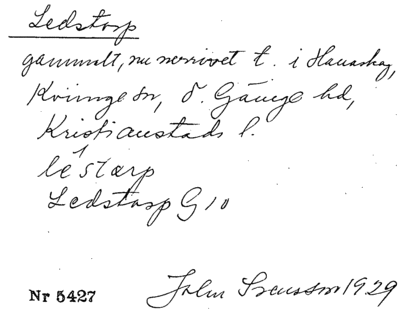 Ledstorp
gammalt, nu nerrivet t. i Hanaskog,
Kviinge sn, Ö. Göinge hd,
Kristianstads l.
léstarp
Ledstorp G 10
John Svensson 1929
Nr 5427